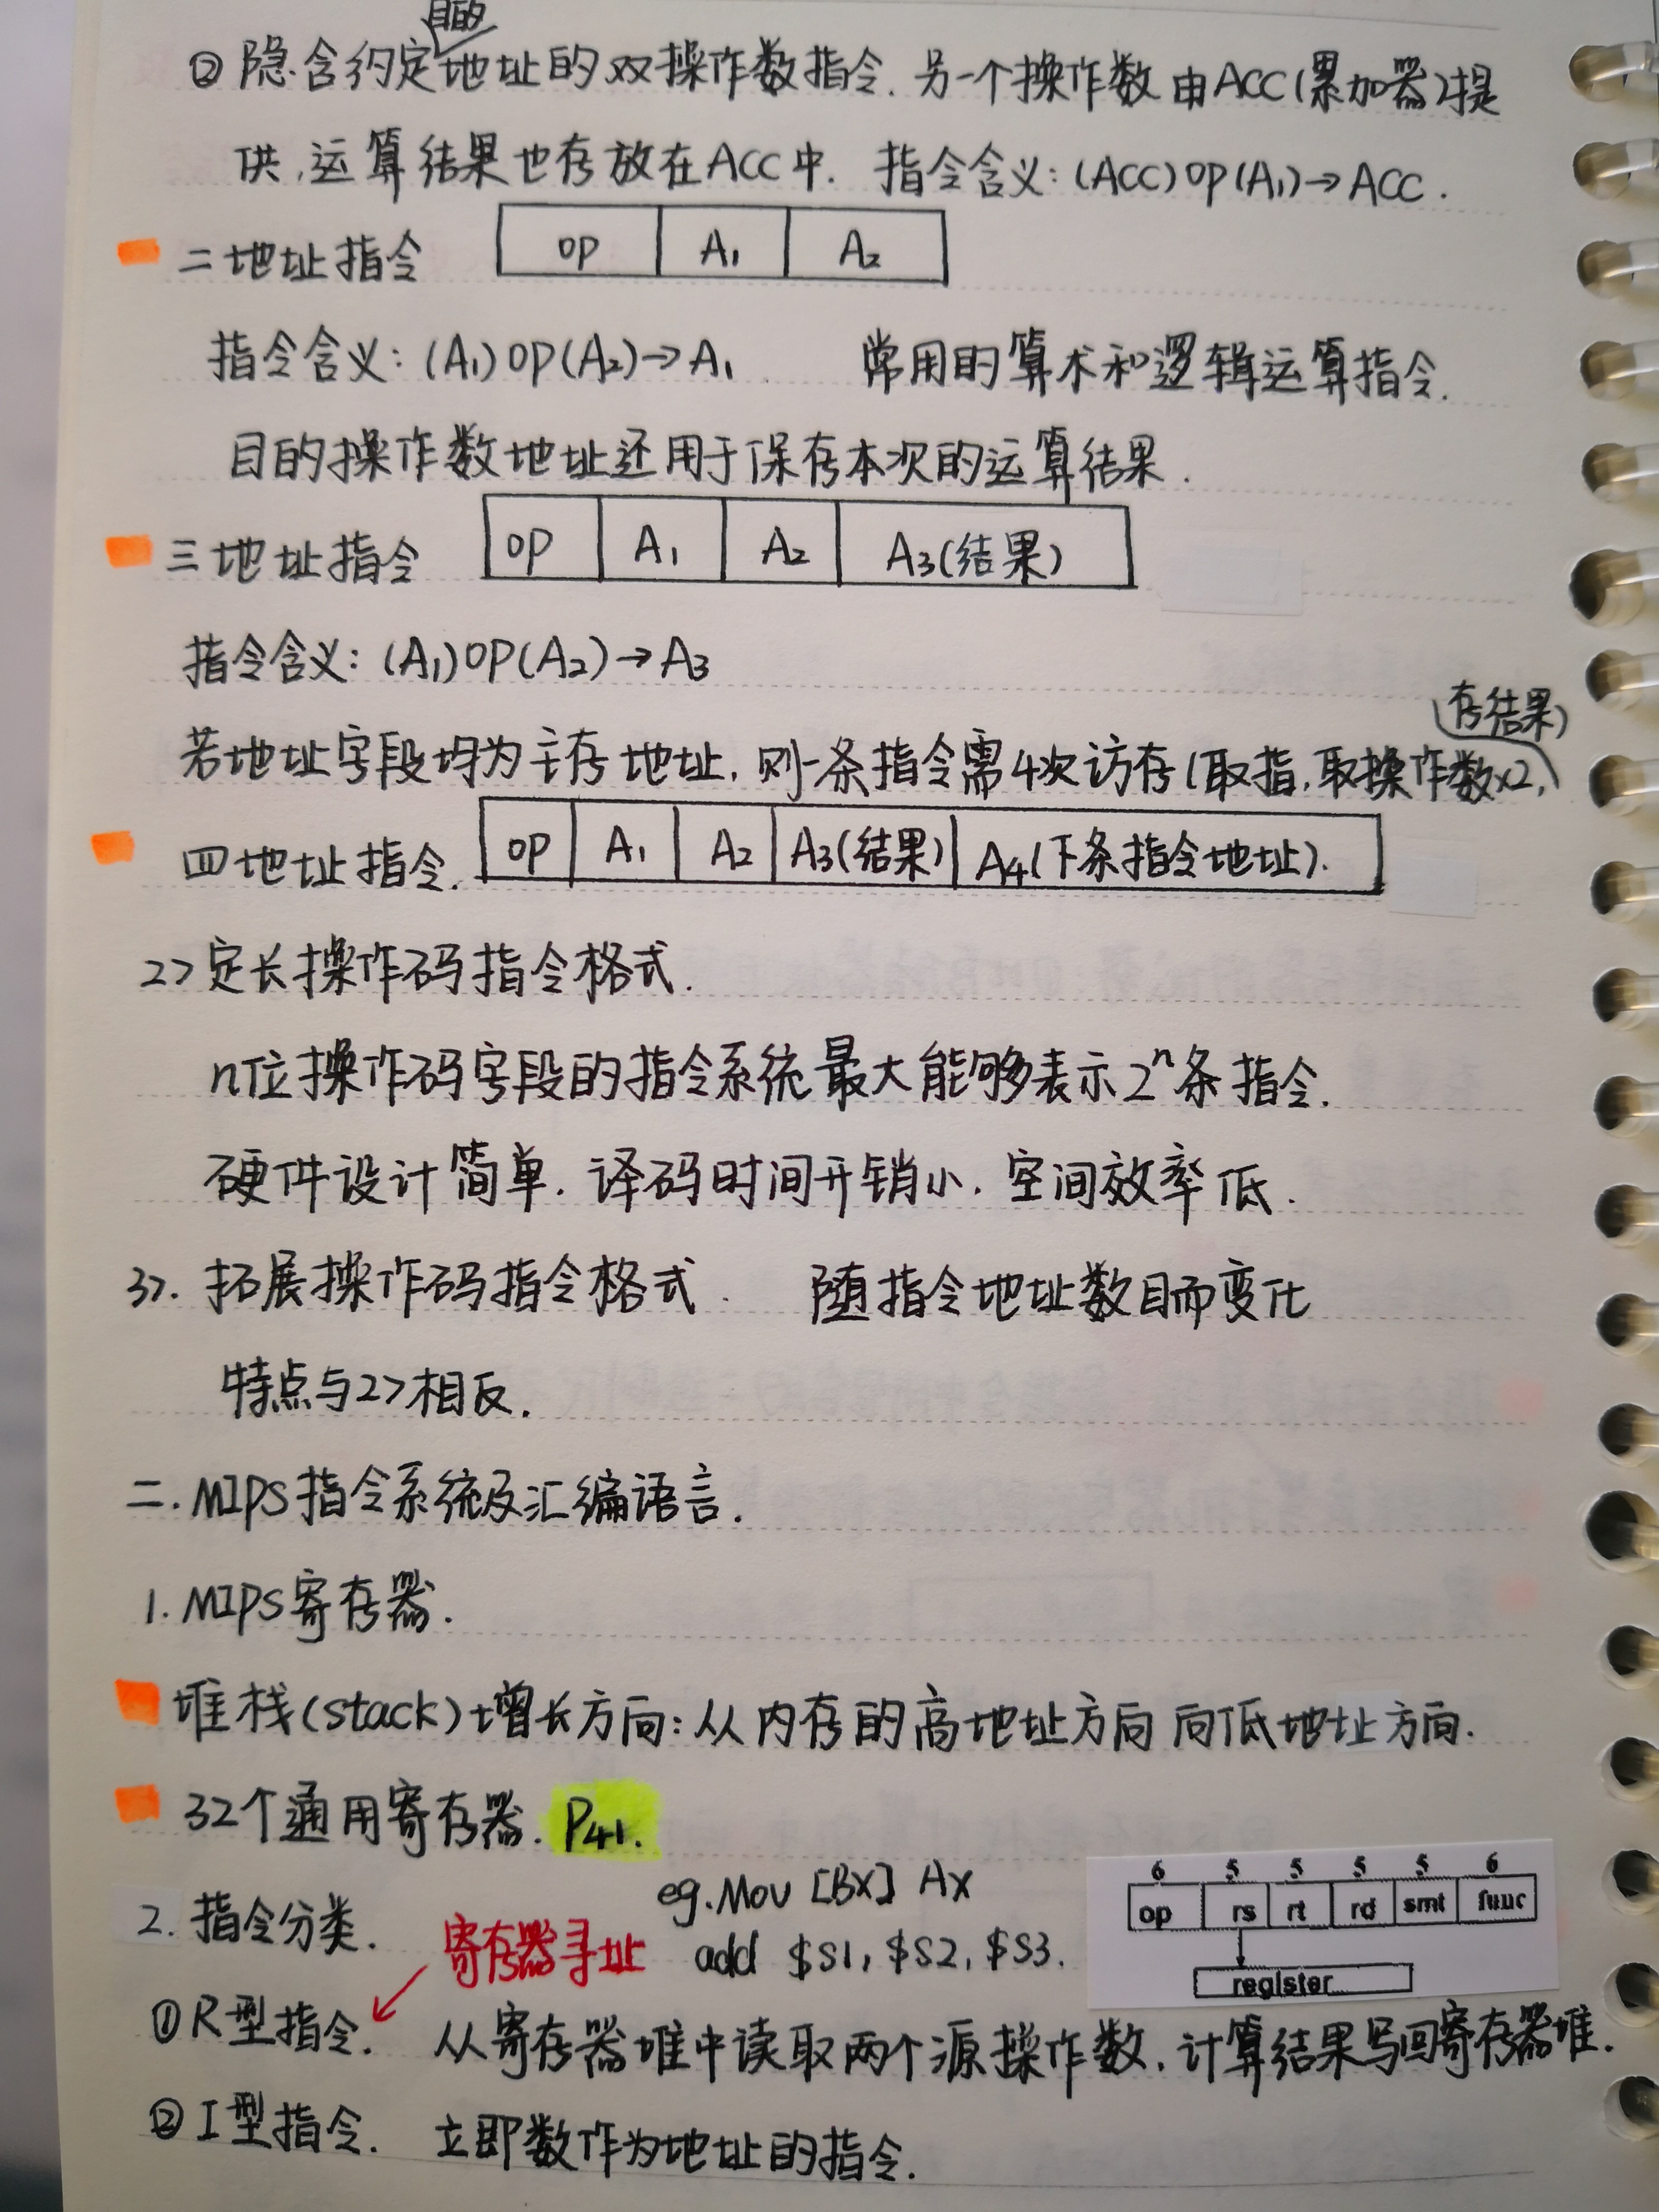 目的
② 隐含约定地址的双操作数指令. 另一个操作数由ACC(累加器)提
供,运算结果也存放在ACC中. 指令含义: (ACC)OP(A₁)→ACC.
二地址指令 OP A₁ A₂
指令含义: (A₁)OP(A₂)→A₁ 常用的算术和逻辑运算指令.
目的操作数地址还用于保存本次的运算结果.
三地址指令 OP A₁ A₂ A₃(结果)
指令含义: (A₁)OP(A₂)→A₃
(存结果)
若地址字段均为主存地址, 则一条指令需4次访存(取指,取操作数x2,
四地址指令. OP A₁ A₂ A₃(结果) A₄(下条指令地址).
2> 定长操作码指令格式.
n位操作码字段的指令系统最大能够表示2ⁿ条指令.
硬件设计简单. 译码时间开销小. 空间效率低.
3>. 拓展操作码指令格式. 随指令地址数目而变化
特点与2>相反.
二. MIPS指令系统及汇编语言.
1. MIPS寄存器.
堆栈(stack)增长方向: 从内存的高地址方向向低地址方向.
32个通用寄存器. P41.
6 5 5 5 5 6
op rs rt rd smt func
register
2. 指令分类. eg. Mov [BX] AX
寄存器寻址 add $S1, $S2, $S3.
① R型指令. 从寄存器堆中读取两个源操作数, 计算结果写回寄存器堆.
② I型指令. 立即数作为地址的指令.